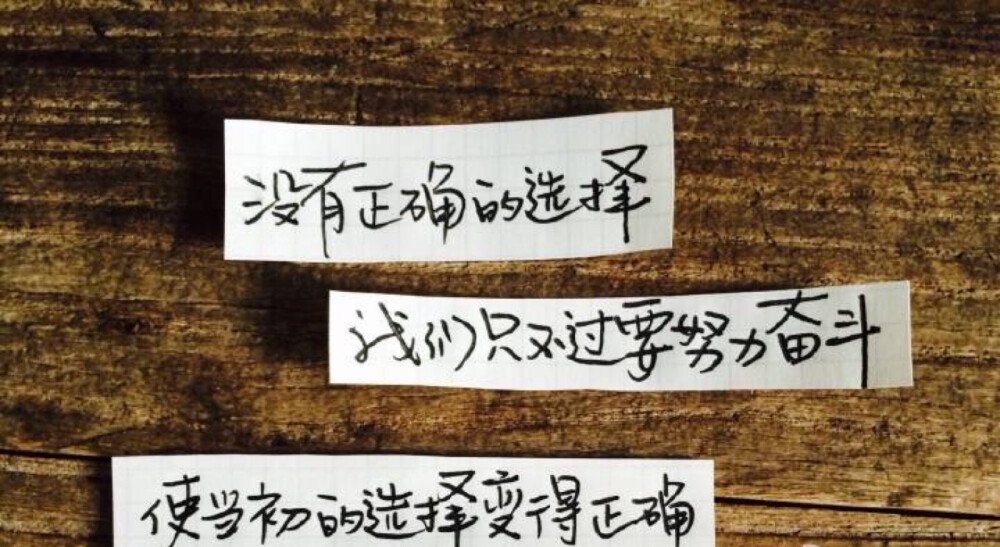 没有正确的选择
我们只不过要努力奋斗
使当初的选择变得正确